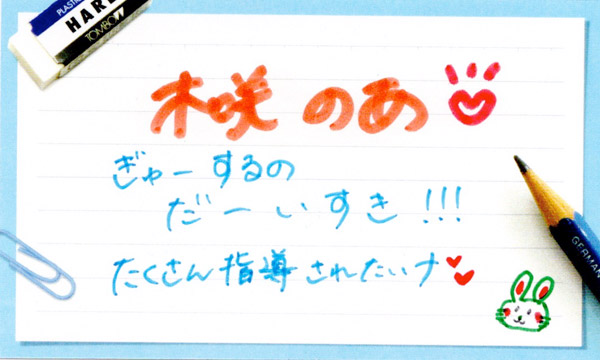 PLASTIC
HARD
TOMBOW
木咲 のあ
ぎゅーするの
だーいすき!!!
たくさん指導されたいナ
GERMAN